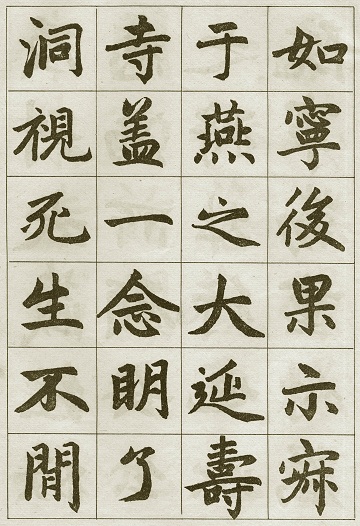 如寧後果示寂
于燕之大延壽
寺盖一念明了
洞視死生不閒